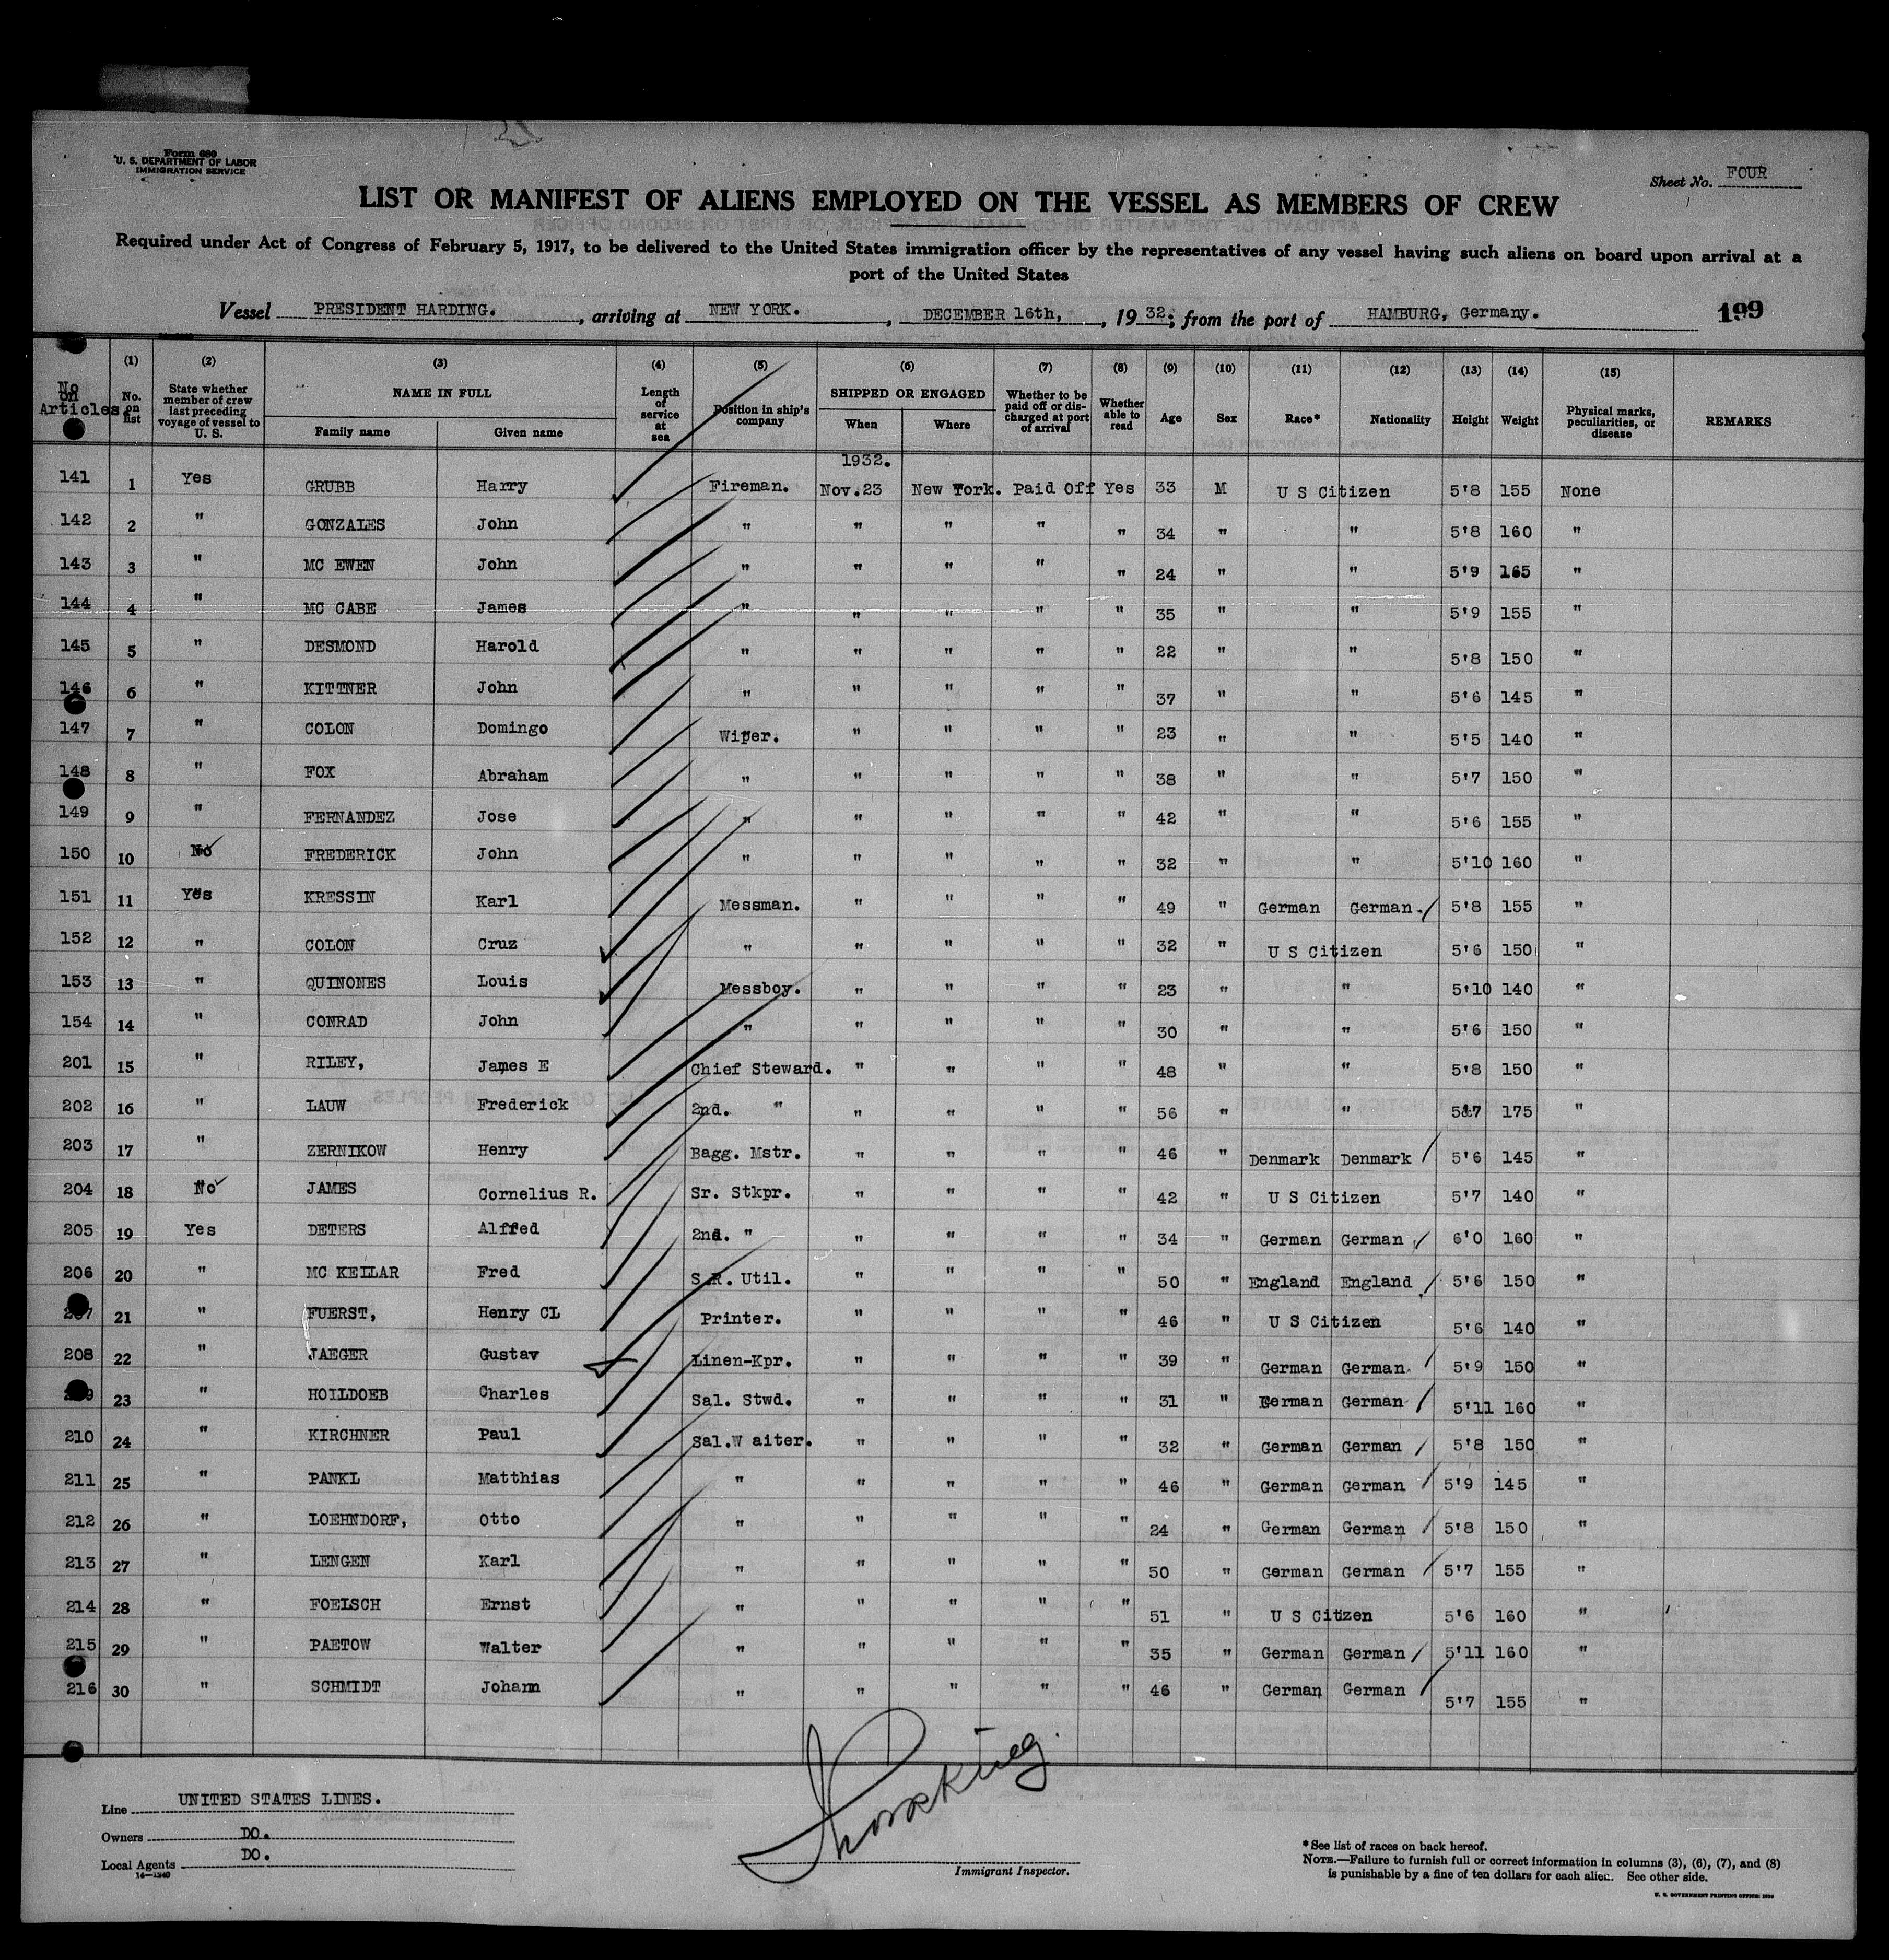 Form 680
U. S. DEPARTMENT OF LABOR
IMMIGRATION SERVICE
Sheet No. FOUR
LIST OR MANIFEST OF ALIENS EMPLOYED ON THE VESSEL AS MEMBERS OF CREW
Required under Act of Congress of February 5, 1917, to be delivered to the United States immigration officer by the representatives of any vessel having such aliens on board upon arrival at a
port of the United States
Vessel PRESIDENT HARDING. , arriving at NEW YORK. , DECEMBER 16th, , 19 32; from the port of HAMBURG, Germany. 199
No on Articles (1) No. on list (2) State whether member of crew last preceding voyage of vessel to U. S. (3) NAME IN FULL Family name Given name (4) Length of service at sea (5) Position in ship's company (6) SHIPPED OR ENGAGED When Where (7) Whether to be paid off or discharged at port of arrival (8) Whether able to read (9) Age (10) Sex (11) Race* (12) Nationality (13) Height (14) Weight (15) Physical marks, peculiarities, or disease REMARKS
1932.
141 1 Yes GRUBB Harry Fireman. Nov.23 New York. Paid Off Yes 33 M U S Citizen 5'8 155 None
142 2 " GONZALES John " " " " " 34 " " 5'8 160 "
143 3 " MC EWEN John " " " " " 24 " " 5'9 165 "
144 4 " MC CABE James " " " " " 35 " " 5'9 155 "
145 5 " DESMOND Harold " " " " " 22 " " 5'8 150 "
146 6 " KITTNER John " " " " " 37 " " 5'6 145 "
147 7 " COLON Domingo Wiper. " " " " 23 " " 5'5 140 "
148 8 " FOX Abraham " " " " " 38 " " 5'7 150 "
149 9 " FERNANDEZ Jose " " " " " 42 " " 5'6 155 "
150 10 No FREDERICK John " " " " " 32 " " 5'10 160 "
151 11 Yes KRESSIN Karl Messman. " " " " 49 " German German. 5'8 155 "
152 12 " COLON Cruz " " " " " 32 " U S Citizen 5'6 150 "
153 13 " QUINONES Louis Messboy. " " " " 23 " " 5'10 140 "
154 14 " CONRAD John " " " " " 30 " " 5'6 150 "
201 15 " RILEY, James E Chief Steward. " " " " 48 " " 5'8 150 "
202 16 " LAUW Frederick 2nd. " " " " " 56 " " 5'7 175 "
203 17 " ZERNIKOW Henry Bagg. Mstr. " " " " 46 " Denmark Denmark 5'6 145 "
204 18 No JAMES Cornelius R. Sr. Stkpr. " " " " 42 " U S Citizen 5'7 140 "
205 19 Yes DETERS Alfred 2nd. " " " " " 34 " German German 6'0 160 "
206 20 " MC KELLAR Fred S.R. Util. " " " " 50 " England England 5'6 150 "
207 21 " FUERST, Henry CL Printer. " " " " 46 " U S Citizen 5'6 140 "
208 22 " JAEGER Gustav Linen-Kpr. " " " " 39 " German German 5'9 150 "
209 23 " HOILDOEB Charles Sal. Stwd. " " " " 31 " German German 5'11 160 "
210 24 " KIRCHNER Paul Sal.W aiter. " " " " 32 " German German 5'8 150 "
211 25 " PANKL Matthias " " " " " 46 " German German 5'9 145 "
212 26 " LOEHNDORF, Otto " " " " " 24 " German German 5'8 150 "
213 27 " LENGEN Karl " " " " " 50 " German German 5'7 155 "
214 28 " FOELSCH Ernst " " " " " 51 " U S Citizen 5'6 160 "
215 29 " PAETOW Walter " " " " " 35 " German German 5'11 160 "
216 30 " SCHMIDT Johann " " " " " 46 " German German 5'7 155 "
Line UNITED STATES LINES.
Owners DO.
Local Agents DO.
14—1240
Immigrant Inspector.
*See list of races on back hereof.
NOTE.—Failure to furnish full or correct information in columns (3), (6), (7), and (8)
is punishable by a fine of ten dollars for each alien. See other side.
U. S. GOVERNMENT PRINTING OFFICE: 1930